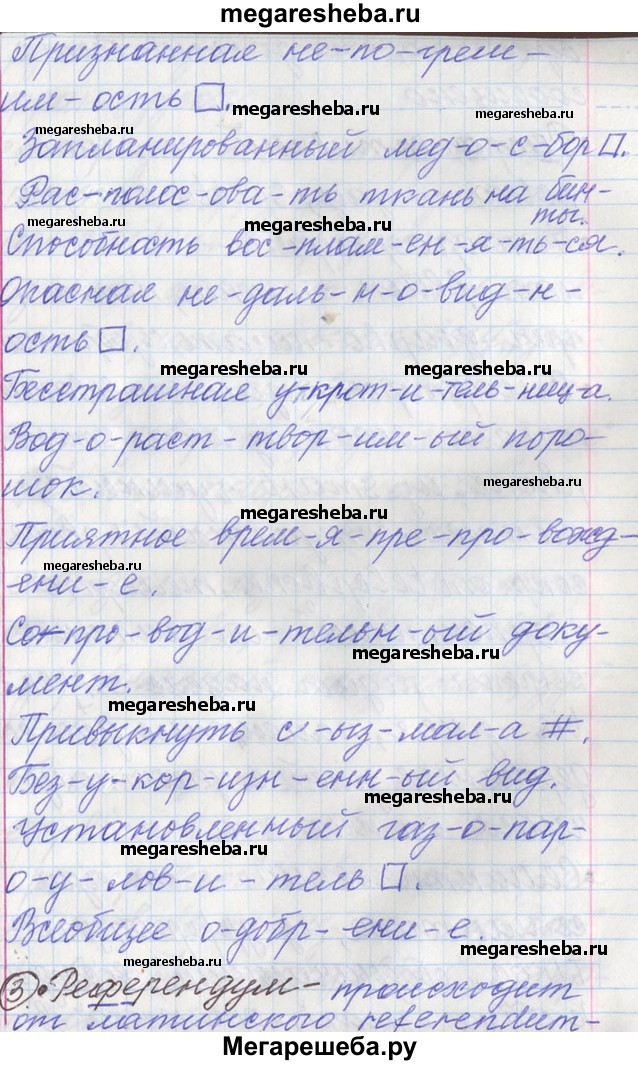 megaresheba.ru
Признанная не-по-греш-
им-ость □.
megaresheba.ru
megaresheba.ru
Запланированный мед-о-с-бор □.
Рас-полос-ова-ть ткань на бин-
ты.
megaresheba.ru
megaresheba.ru
Способность вос-плам-ен-я-ть-ся.
Опасная не-даль-н-о-вид-н-
ость □.
megaresheba.ru
megaresheba.ru
Бесстрашная у-крот-и-тель-ниц-а.
Вод-о-раст-твор-им-ый поро-
шок.
megaresheba.ru
megaresheba.ru
Приятное врем-я-пре-про-вожд-
megaresheba.ru
-ени-е.
Со-про-вод-и-тельн-ый доку-
megaresheba.ru
мент.
megaresheba.ru
Привыкнуть с-ыз-мал-а #.
Без-у-кор-изн-енн-ый вид.
megaresheba.ru
Установленный газ-о-пар-
megaresheba.ru
о-у-лов-и-тель □.
Всеобщее о-добр-ени-е.
megaresheba.ru
megaresheba.ru
3 • Референдум - происходит
от латинского referendum-
Мегарешеба.ру